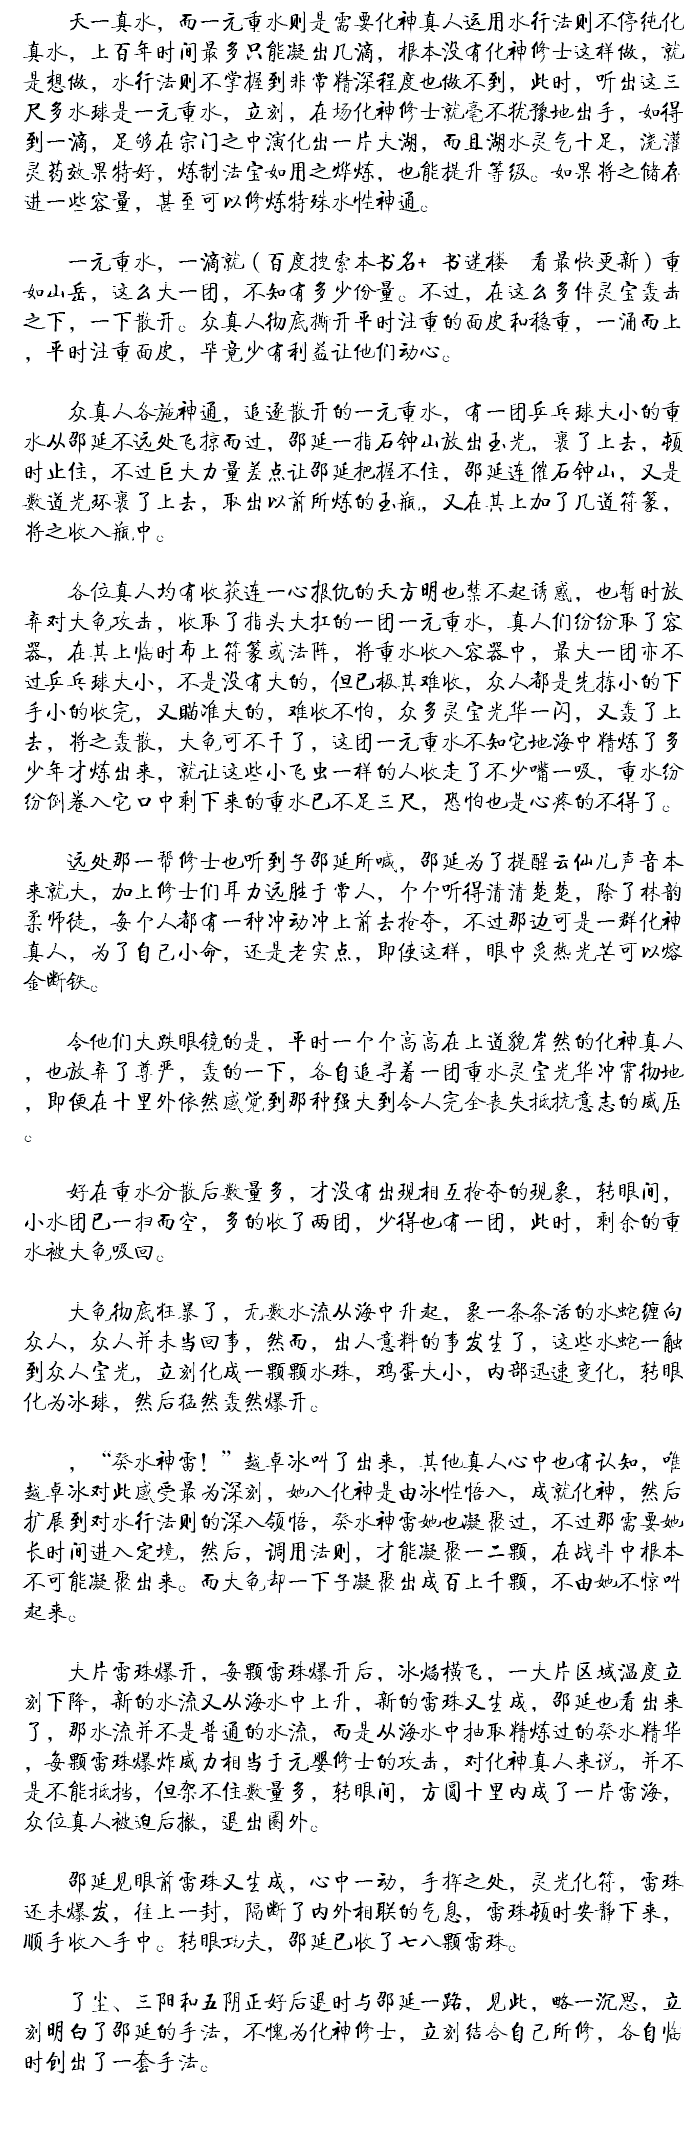 天一真水，而一元重水则是需要化神真人运用水行法则不停纯化
真水，上百年时间最多只能凝出几滴，根本没有化神修士这样做，就
是想做，水行法则不掌握到非常精深程度也做不到，此时，听出这三
尺多水球是一元重水，立刻，在场化神修士就毫不犹豫地出手，如得
到一滴，足够在宗门之中演化出一片大湖，而且湖水灵气十足，浇灌
灵药效果特好，炼制法宝如用之烨炼，也能提升等级。如果将之储存
进一些容量，甚至可以修炼特殊水性神通。
一元重水，一滴就（百度搜索本书名+ 书迷楼 看最快更新）重
如山岳，这么大一团，不知有多少份量。不过，在这么多件灵宝轰击
之下，一下散开。众真人彻底撕开平时注重的面皮和稳重，一涌而上
，平时注重面皮，毕竟少有利益让他们动心。
众真人各施神通，追逐散开的一元重水，有一团乒乓球大小的重
水从邵延不远处飞掠而过，邵延一指石钟山放出玉光，裹了上去，顿
时止住，不过巨大力量差点让邵延把握不住，邵延连催石钟山，又是
数道光环裹了上去，取出以前所炼的玉瓶，又在其上加了几道符篆，
将之收入瓶中。
各位真人均有收获连一心报仇的天方明也禁不起诱惑，也暂时放
弃对大龟攻击，收取了指头大扛的一团一元重水，真人们纷纷取了容
器，在其上临时布上符篆或法阵，将重水收入容器中，最大一团亦不
过乒乓球大小，不是没有大的，但已极其难收，众人都是先拣小的下
手小的收完，又瞄准大的，难收不怕，众多灵宝光华一闪，又轰了上
去，将之轰散，大龟可不干了，这团一元重水不知它地海中精炼了多
少年才炼出来，就让这些小飞虫一样的人收走了不少嘴一吸，重水纷
纷倒卷入它口中剩下来的重水已不足三尺，恐怕也是心疼的不得了。
远处那一帮修士也听到子邵延所喊，邵延为了提醒云仙儿声音本
来就大，加上修士们耳力远胜于常人，个个听得清清楚楚，除了林韵
柔师徒，每个人都有一种冲动冲上前去抢夺，不过那边可是一群化神
真人，为了自己小命，还是老实点，即使这样，眼中炙热光芒可以熔
金断铁。
令他们大跌眼镜的是，平时一个个高高在上道貌岸然的化神真人
，也放弃了尊严，轰的一下，各自追寻着一团重水灵宝光华冲霄彻地
，即便在十里外依然感觉到那种强大到令人完全丧失抵抗意志的威压
。
好在重水分散后数量多，才没有出现相互抢夺的现象，转眼间，
小水团已一扫而空，多的收了两团，少得也有一团，此时，剩余的重
水被大龟吸回。
大龟彻底狂暴了，无数水流从海中升起，象一条条活的水蛇缠向
众人，众人并未当回事，然而，出人意料的事发生了，这些水蛇一触
到众人宝光，立刻化成一颗颗水珠，鸡蛋大小，内部迅速变化，转眼
化为冰球，然后猛然轰然爆开。
，“癸水神雷！”越卓冰叫了出来，其他真人心中也有认知，唯
越卓冰对此感受最为深刻，她入化神是由冰性悟入，成就化神，然后
扩展到对水行法则的深入领悟，癸水神雷她也凝聚过，不过那需要她
长时间进入定境，然后，调用法则，才能凝聚一二颗，在战斗中根本
不可能凝聚出来。而大龟却一下子凝聚出成百上千颗，不由她不惊叫
起来。
大片雷珠爆开，每颗雷珠爆开后，冰焰横飞，一大片区域温度立
刻下降，新的水流又从海水中上升，新的雷珠又生成，邵延也看出来
了，那水流并不是普通的水流，而是从海水中抽取精炼过的癸水精华
，每颗雷珠爆炸威力相当于元婴修士的攻击，对化神真人来说，并不
是不能抵挡，但架不住数量多，转眼间，方圆十里内成了一片雷海，
众位真人被迫后撤，退出圈外。
邵延见眼前雷珠又生成，心中一动，手挥之处，灵光化符，雷珠
还未爆发，往上一封，隔断了内外相联的气息，雷珠顿时安静下来，
顺手收入手中。转眼功夫，邵延已收了七八颗雷珠。
了尘、三阳和五阴正好后退时与邵延一路，见此，略一沉思，立
刻明白了邵延的手法，不愧为化神修士，立刻结合自己所修，各自临
时创出了一套手法。